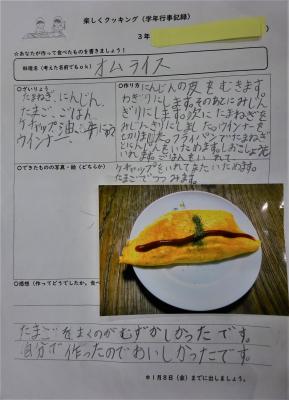 楽しくクッキング（学年行事記録）
3年
☆あなたが作って食べたものを書きましょう！
料理名（考えた名前でもok） オムライス
○ざいりょう
たまねぎ、にんじん、
たまご、ごはん
ケチャップ油、
ウインナー、
○作り方 にんじんの皮をむきます。
わぎりにします。その次にみじん
ぎりにします。次にたまねぎを
みじんぎりにしました。ウインナーを
切りました。フライパンでたまねぎ
とにんじんをいためます。しおこしょう
いれます。ごはんをいれて
ケチャップをいれてまたいためます。
たまごでつつみます。
○できたものの写真・絵（どちらか）
○感想（作ってどうでしたか。食べ
たまごをまくのがむずかしかったです。
自分で作ったのでおいしかったです。
※1月8日（金）までに出しましょう。